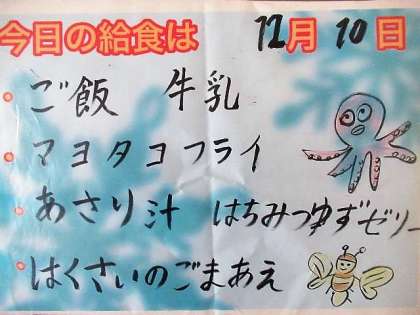 今日の給食は 12月10日
・ご飯 牛乳
・マヨタコフライ
・あさり汁 はちみつゆずゼリー
・はくさいのごまあえ